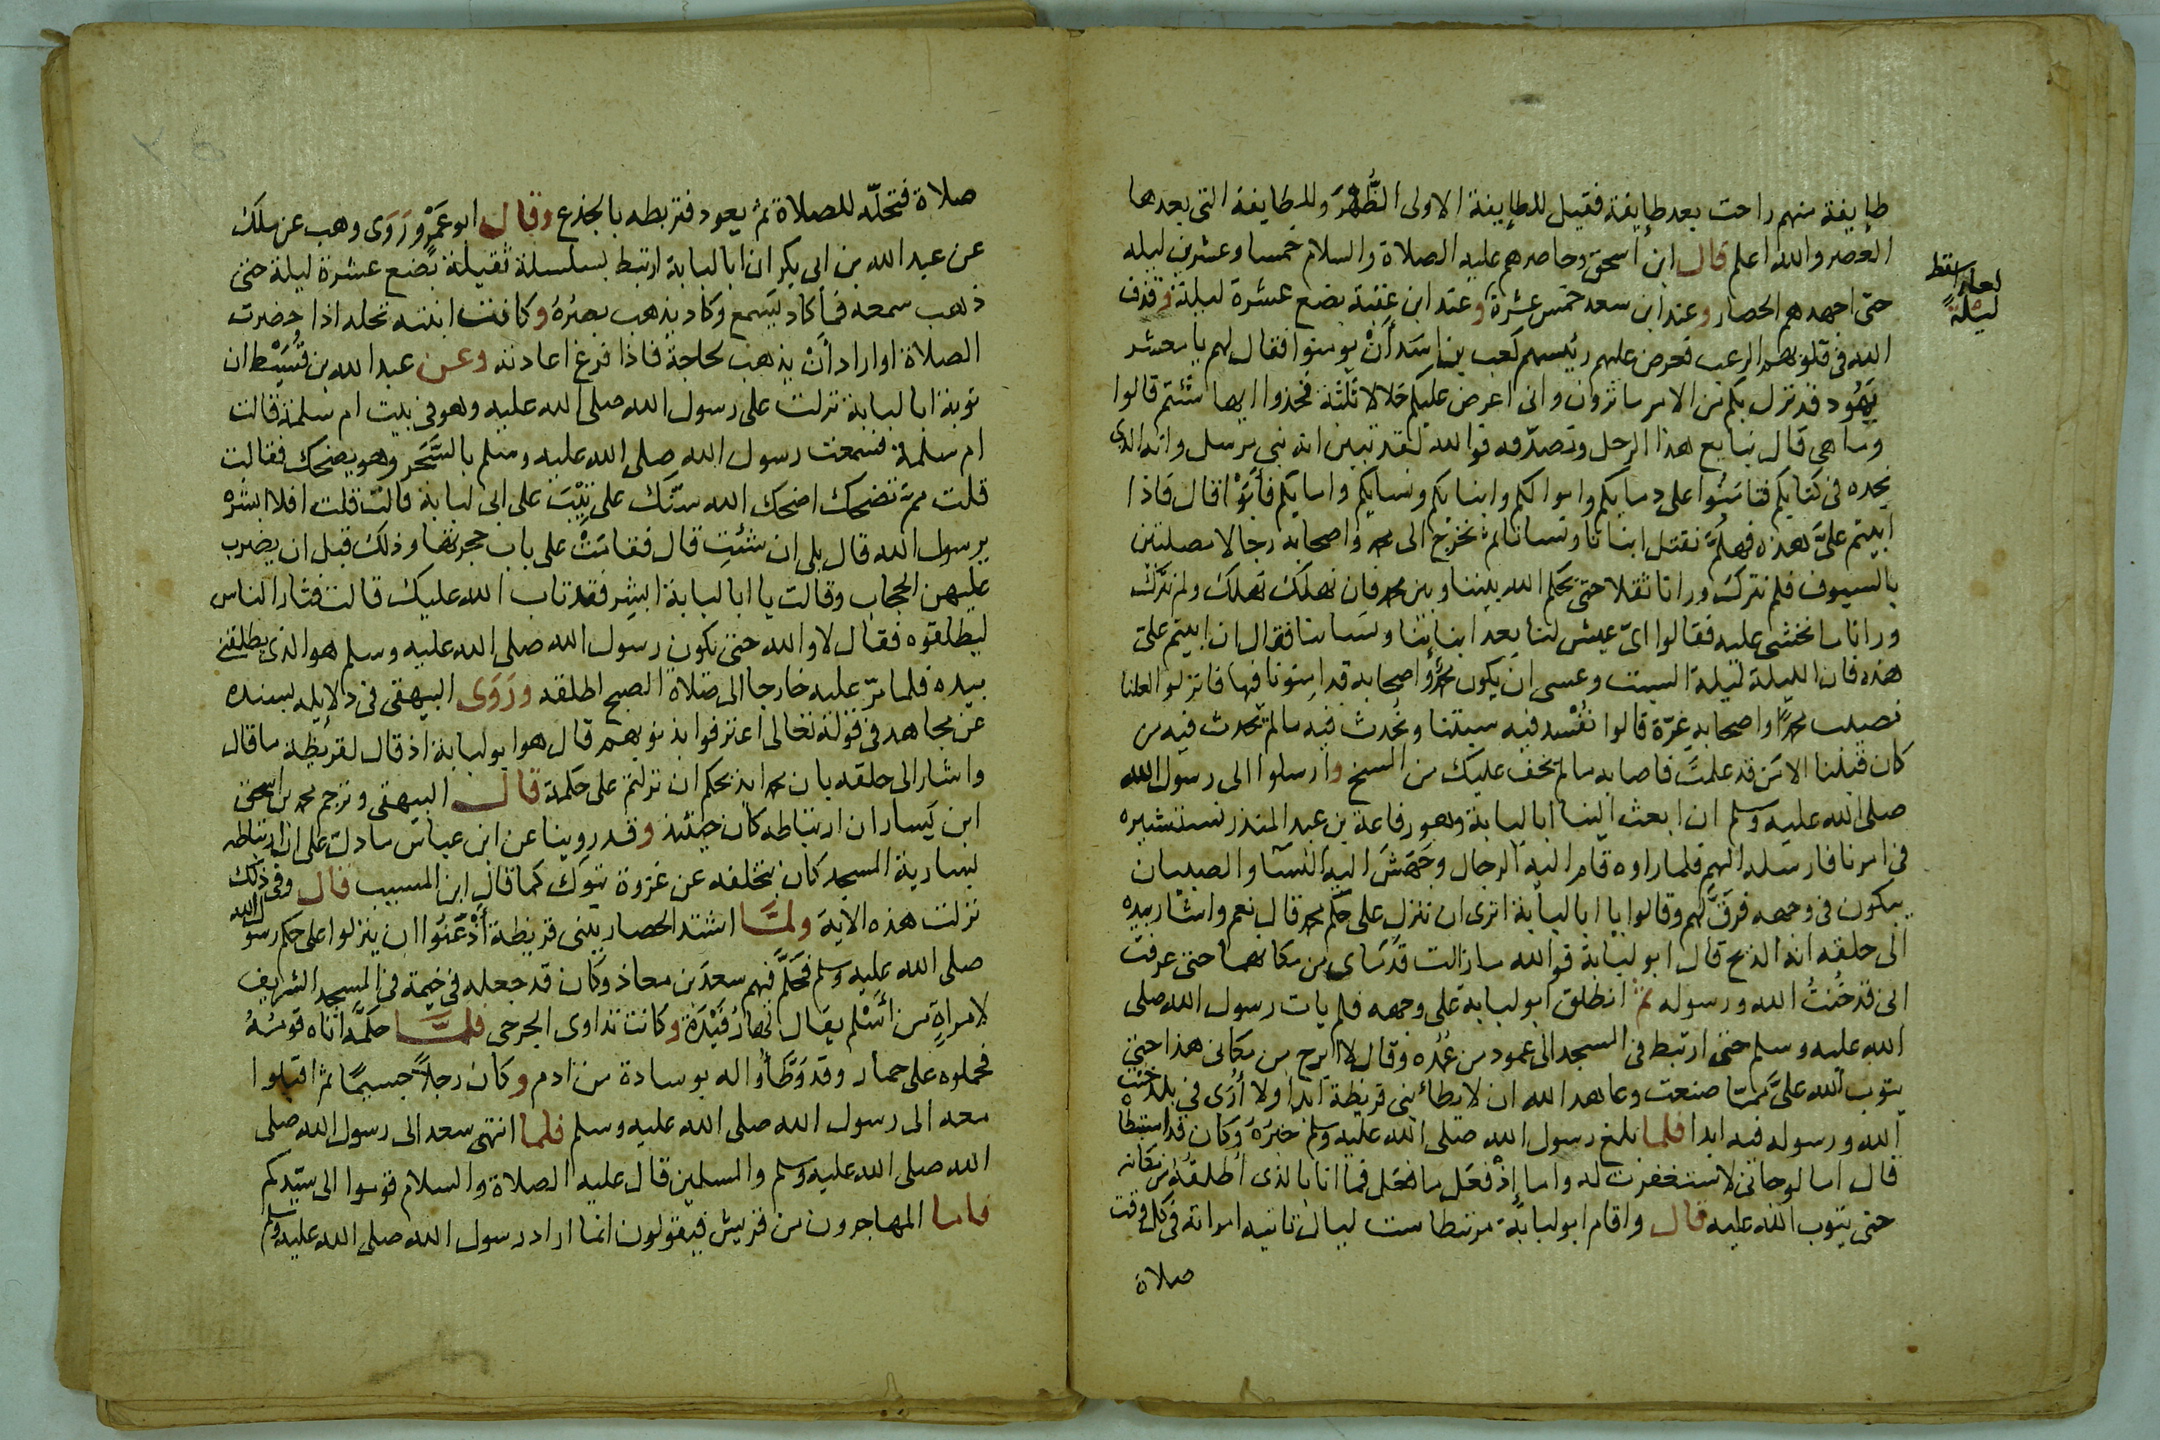 طايفة منهم راحت بعد طايفة فقيل للطايفة الاولى الظُّهْرَ وللطايفة التى بعدها
العصر والله اعلم قال ابن اسحق وحاصرهم عليه الصلاة والسلام خمسا وعشرين ليله
لعله سقط
ليلةً
حتى اجهدهم الحصار وعند ابن سعد خمس عشرة وعند ابن عقبة بضع عشرة ليلة وقذف
الله فى قلوبهم الرعب فعرض عليهم رئيسهم كعب بن اسَد أَنْ يومنوا فقال لهم يا معشر
يَهُود قد نزل بكم من الامر ما ترون وانى اعرض عليكم خلالا ثلثة فخذوا ايها شئتم قالوا
وما هى قال نبايع هذا الرجل ونصدّقه فوالله لقد تبين انه نبى مرسل وانه الذى
تجده فى كتابكم فتامَنُوا على دمايكم واموالكم وابنايكم ونسايكم وامايكم فأبَوْا قال فاذا
ابيتم علىَّ هذه فهلُمَّ نقتل ابنانا ونسانا ثم نخرج الى محمد واصحابه رجالا مصلتين
بالسيوف فلم نترك ورانا ثقلا حتى يحكم الله بيننا وبين محمد فان نهلك نهلك ولم نترك
ورانا ما نخشى عليه فقالوا اىّ عيش لنا بعد ابنائنا ونسائنا فقال ان ابيتم علىّ
هذه فان الليلة ليلة السبت وعسى ان يكون محمدٌ واصحابه قد امنونا فيها فانزلوا لعلنا
نصيب محمدًا واصحابه غرّة قالوا نُفْسد فيه سبتنا ونُحدث فيه ما لم يحدث فيه من
كان قبلنا الا من قد علمتَ فاصابه ما لم يخف عليك من المسخ وارسلوا الى رسول الله
صلى الله عليه وسلم ان ابعث الينا ابا لبابة وهو رفاعة بن عبد المنذر نستشيره
فى امرنا فارسله اليهم فلما راوه قام اليه الرجال وجَهَشَ اليه النسآ والصبيان
يبكون فى وجهه فرقَّ لهم وقالوا يا ابا لبابة اترى ان ننزل على حكم محمد قال نعم واشار بيده
الى حلقه انه الذبح قال ابو لبابة فوالله ما زالت قَدَماى من مكانهما حتى عرفت
انى قد خُنتُ الله ورسوله ثم انطلق ابو لبابة على وجهه فلم يات رسول الله صلى
الله عليه وسلم حتى ارتبط فى المسجد الى عمود من عُمُده وقال لا ابرح من مكانى هذا حتى
يتوب الله علىَّ ممّا صنعت وعاهد الله ان لا يطأ بنى قريظة ابدا ولا أُرَى فى بلد خنت
الله ورسوله فيه ابدا فلما بلغ رسول الله صلى الله عليه وسلم خبرُهُ وكان قد استبطاْ
قال اما لو جانى لاستغفرت له واما إِذْ فعل ما فعل فما انا بالذى أُطلقُه من مكانه
حتى يتوب الله عليه قال واقام ابو لبابة مرتبطا ست ليال تاتيه امراته فى كل وقت
صلاة
صلاة فتحلّه للصلاة ثم يعود فتربطه بالجذع وقال ابو عَمْرٍو رَوَى وهب عن ملك
عن عبد الله بن ابى بكر ان ابا لبابة ارتبط بسلسلة ثقيلة بضع عشرة ليلة حتى
ذهب سمعه فما كاد يَسمع وكاد يذهب بصرُهُ وكانت ابنته تحله اذا حضرت
الصلاة او اراد أَنْ يذهب لحاجة فاذا فرغ اعادته وعن عبد الله بن قُسَيْط ان
توبة ابا لبابة نزلت على رسول الله صلى الله عليه وهو فى بيت ام سلمة قالت
ام سلمة فسمعت رسول الله صلى الله عليه وسلم بالسَّحَر وهو يضحك فقالت
قلت مم تضحك اضحك الله سنّك على تِيْبَ على ابى لبابة قالت قلت افلا ابشره
يرسول الله قال بلى ان شئتِ قال فقامَتْ على باب حجرتها وذلك قبل ان يضرب
عليهن الحجاب وقالت يا ابا لبابة ابشِر فقد تاب الله عليك قالت فثار الناس
ليطلقوه فقال لا والله حتى يكون رسول الله صلى الله عليه وسلم هو الذى يطلقنى
بيده فلما مرّ عليه خارجا الى صلاة الصبح اطلقه ورَوَى البيهقى فى دلايله بسنده
عن مجاهد فى قوله تعالى اعترفوا بذنوبهم قال هو ابو لبابة اذ قال لقريظة ما قال
واشار الى حلقه بان محمدا يذبحكم ان نزلتم على حكمه قال البيهقى وترجم محمد بن اسحق
ابن يَسار ان ارتباطه كان حينئذ وقد روينا عن ابن عباس ما دل على ان ارتباطه
بسارية المسجد كان بتخلفه عن غزوة تبوك كما قال ابن المسيب قال وفى ذلك
نزلت هذه الاية ولمَّا اشتد الحصار ببنى قريظة أَذْعَنُوا ان ينزلوا على حكم رسول الله
صلى الله عليه وسلم فَحَكَّم فيهم سعدَ بن معاذ وكان قد جعله فى خيمة فى المسجد الشريف
لامراةٍ من أَسْلم يقال لها رُفَيْدَة وكانت تداوى الجرحى فلمَّا حكَمَّه اتاه قومُهُ
فحملوه على حمار وقد وَطَّأُوا له بوسادة من ادم وكان رجلاً جسيمًا ثم اقبلوا
معه الى رسول الله صلى الله عليه وسلم فلما انتهى سعد الى رسول الله صلى
الله صلى الله عليه وسلم والمسلمين قال عليه الصلاة والسلام قوموا الى سيّدكم
فاما المهاجرون من قريش فيقولون انما اراد رسول الله صلى الله عليه وسلم